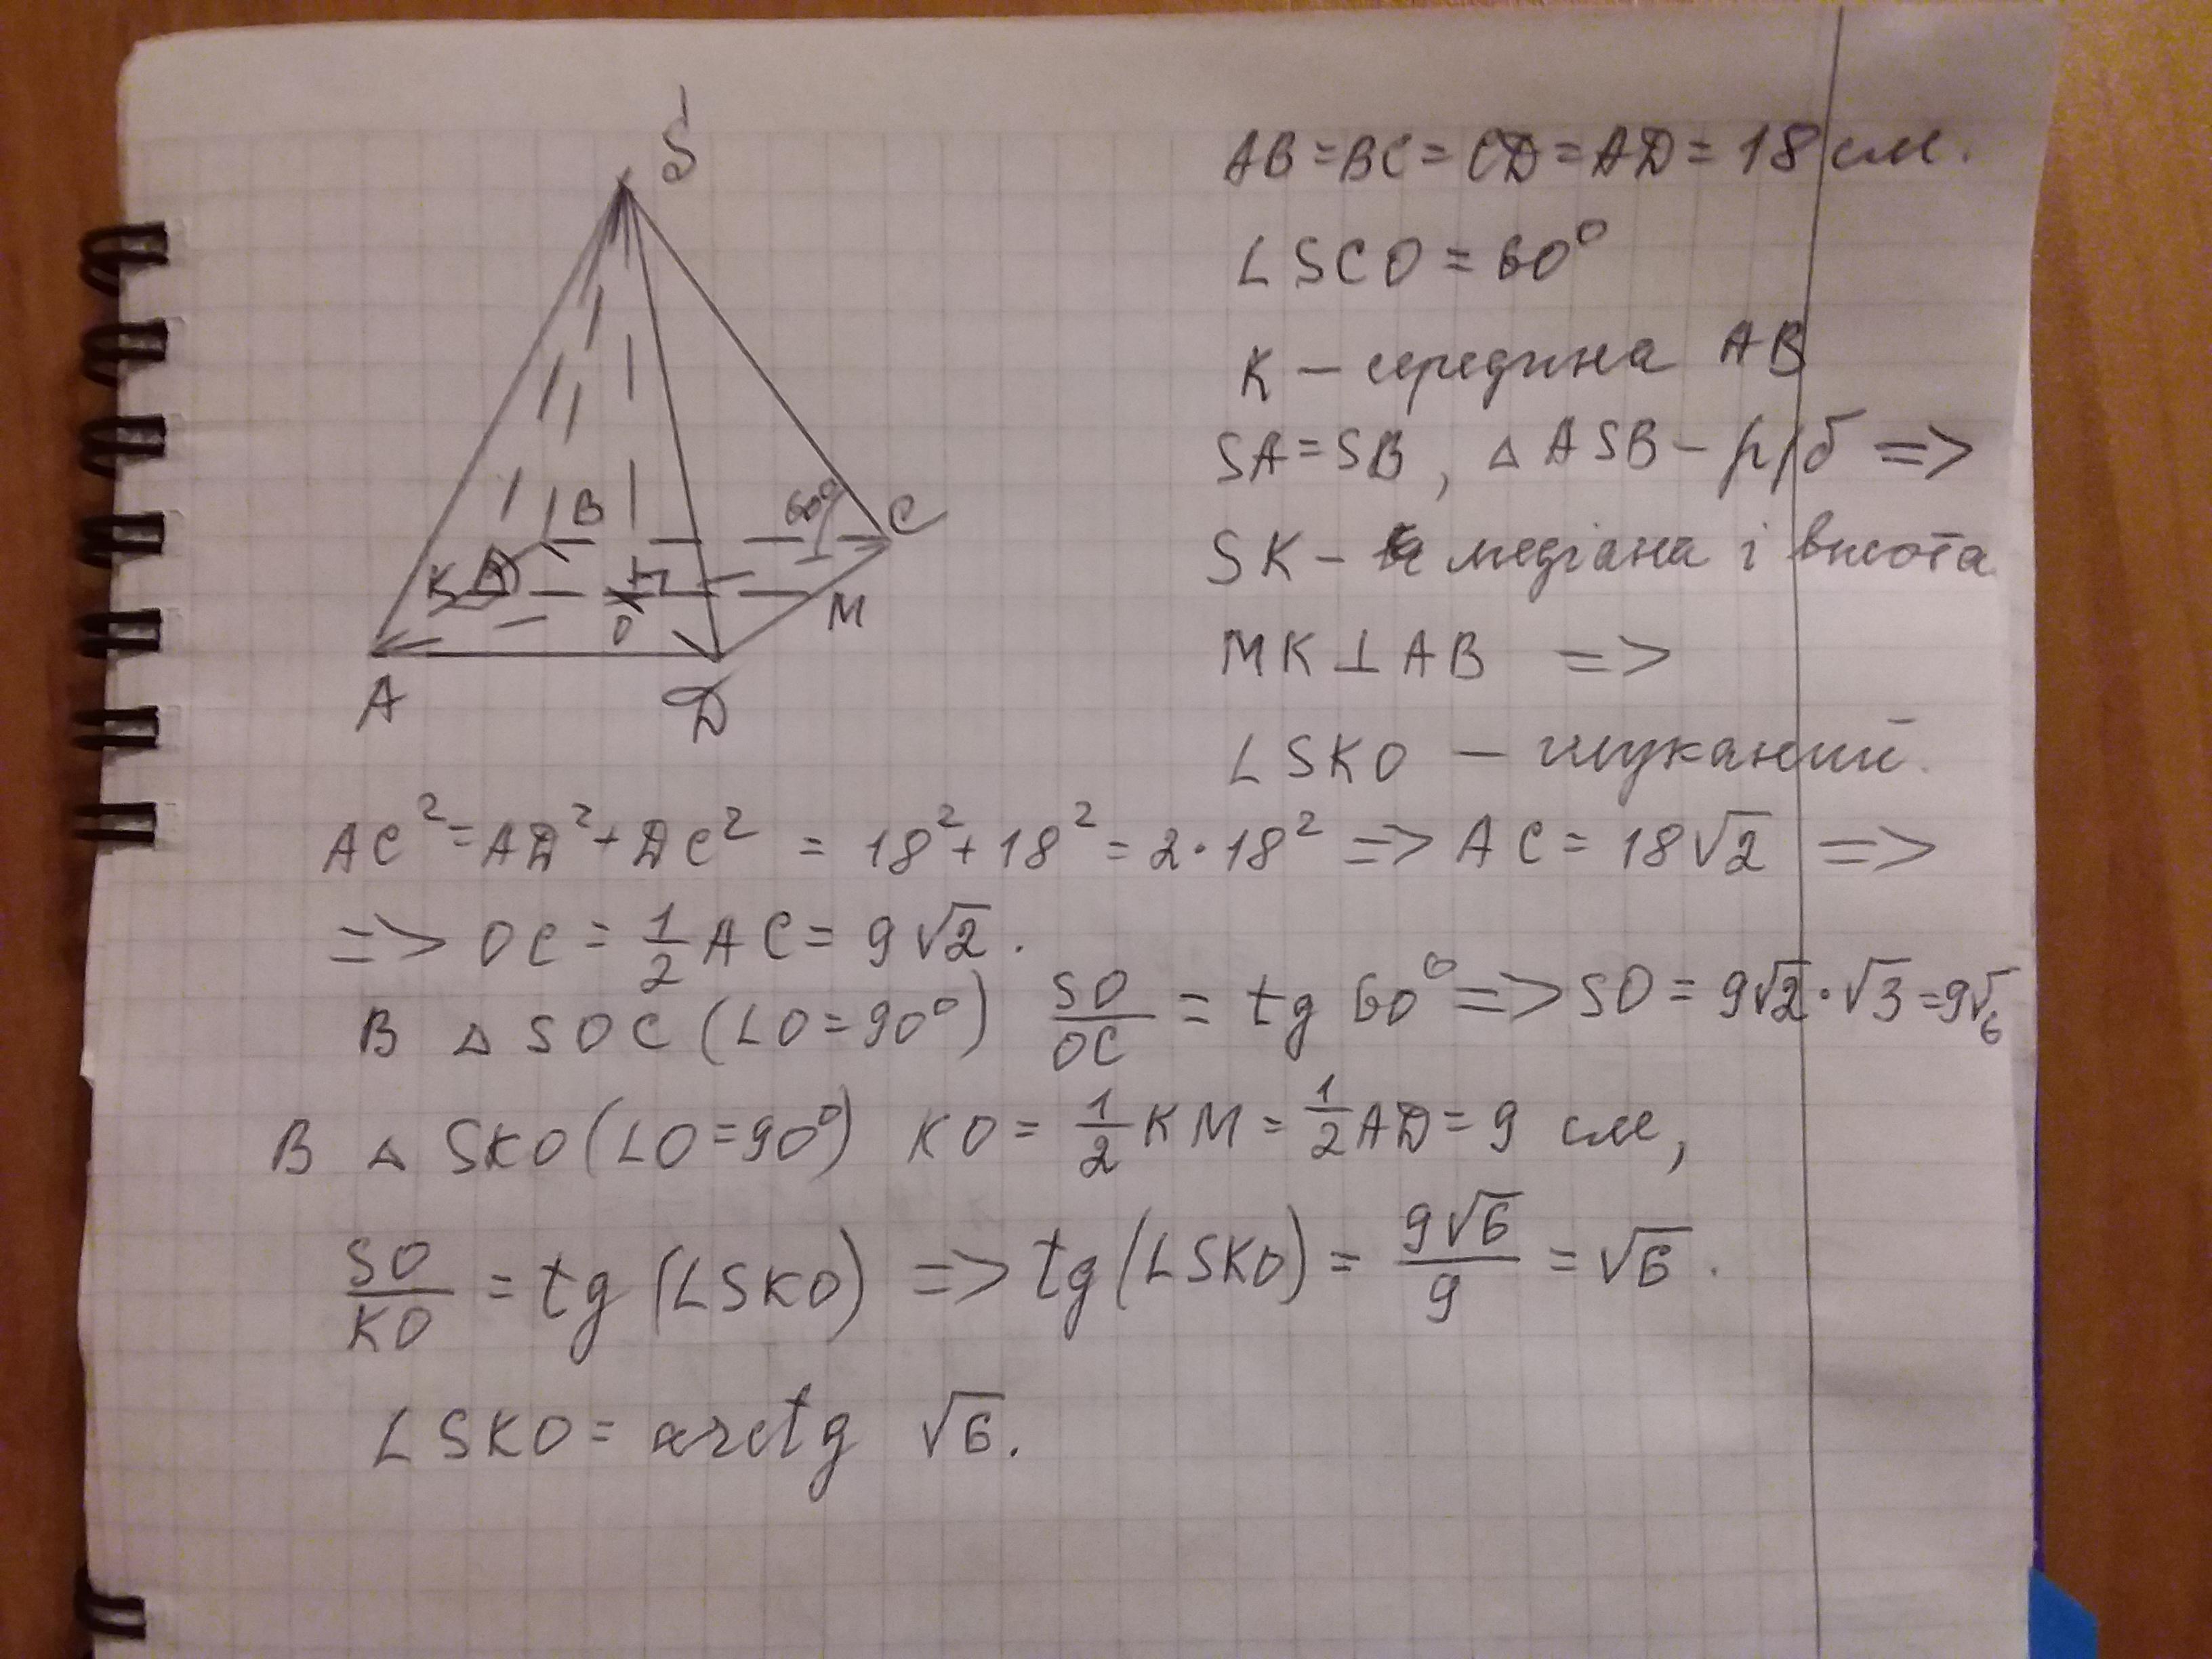 S
B
60°
C
K
O
M
A
D
AB = BC = CD = AD = 18 см.
∠SCO = 60°
K – середина AB
SA = SB, △ASB – р/б =>
SK – медіана і висота
MK ⊥ AB =>
∠SKO – шуканий.
AC² = AD² + DC² = 18² + 18² = 2·18² => AC = 18√2 =>
=> OC = 1/2 AC = 9√2.
В △SOC (∠O = 90°) SO/OC = tg 60° => SO = 9√2·√3 = 9√6
В △SKO (∠O = 90°) KO = 1/2 KM = 1/2 AD = 9 см,
SO/KO = tg (∠SKO) => tg (∠SKO) = 9√6/9 = √6.
∠SKO = arctg √6.